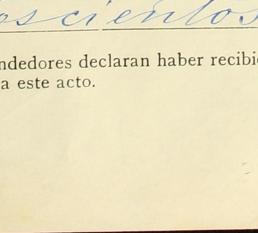 oscientos
ndedores declaran haber recibi
a este acto.